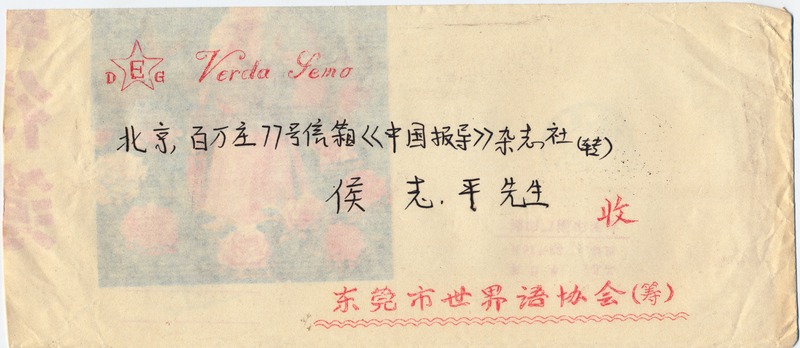 D E G Verda Semo
北京,百万庄77号信箱《中国报导》杂志社(转)
侯志平先生 收
东莞市世界语协会(筹)